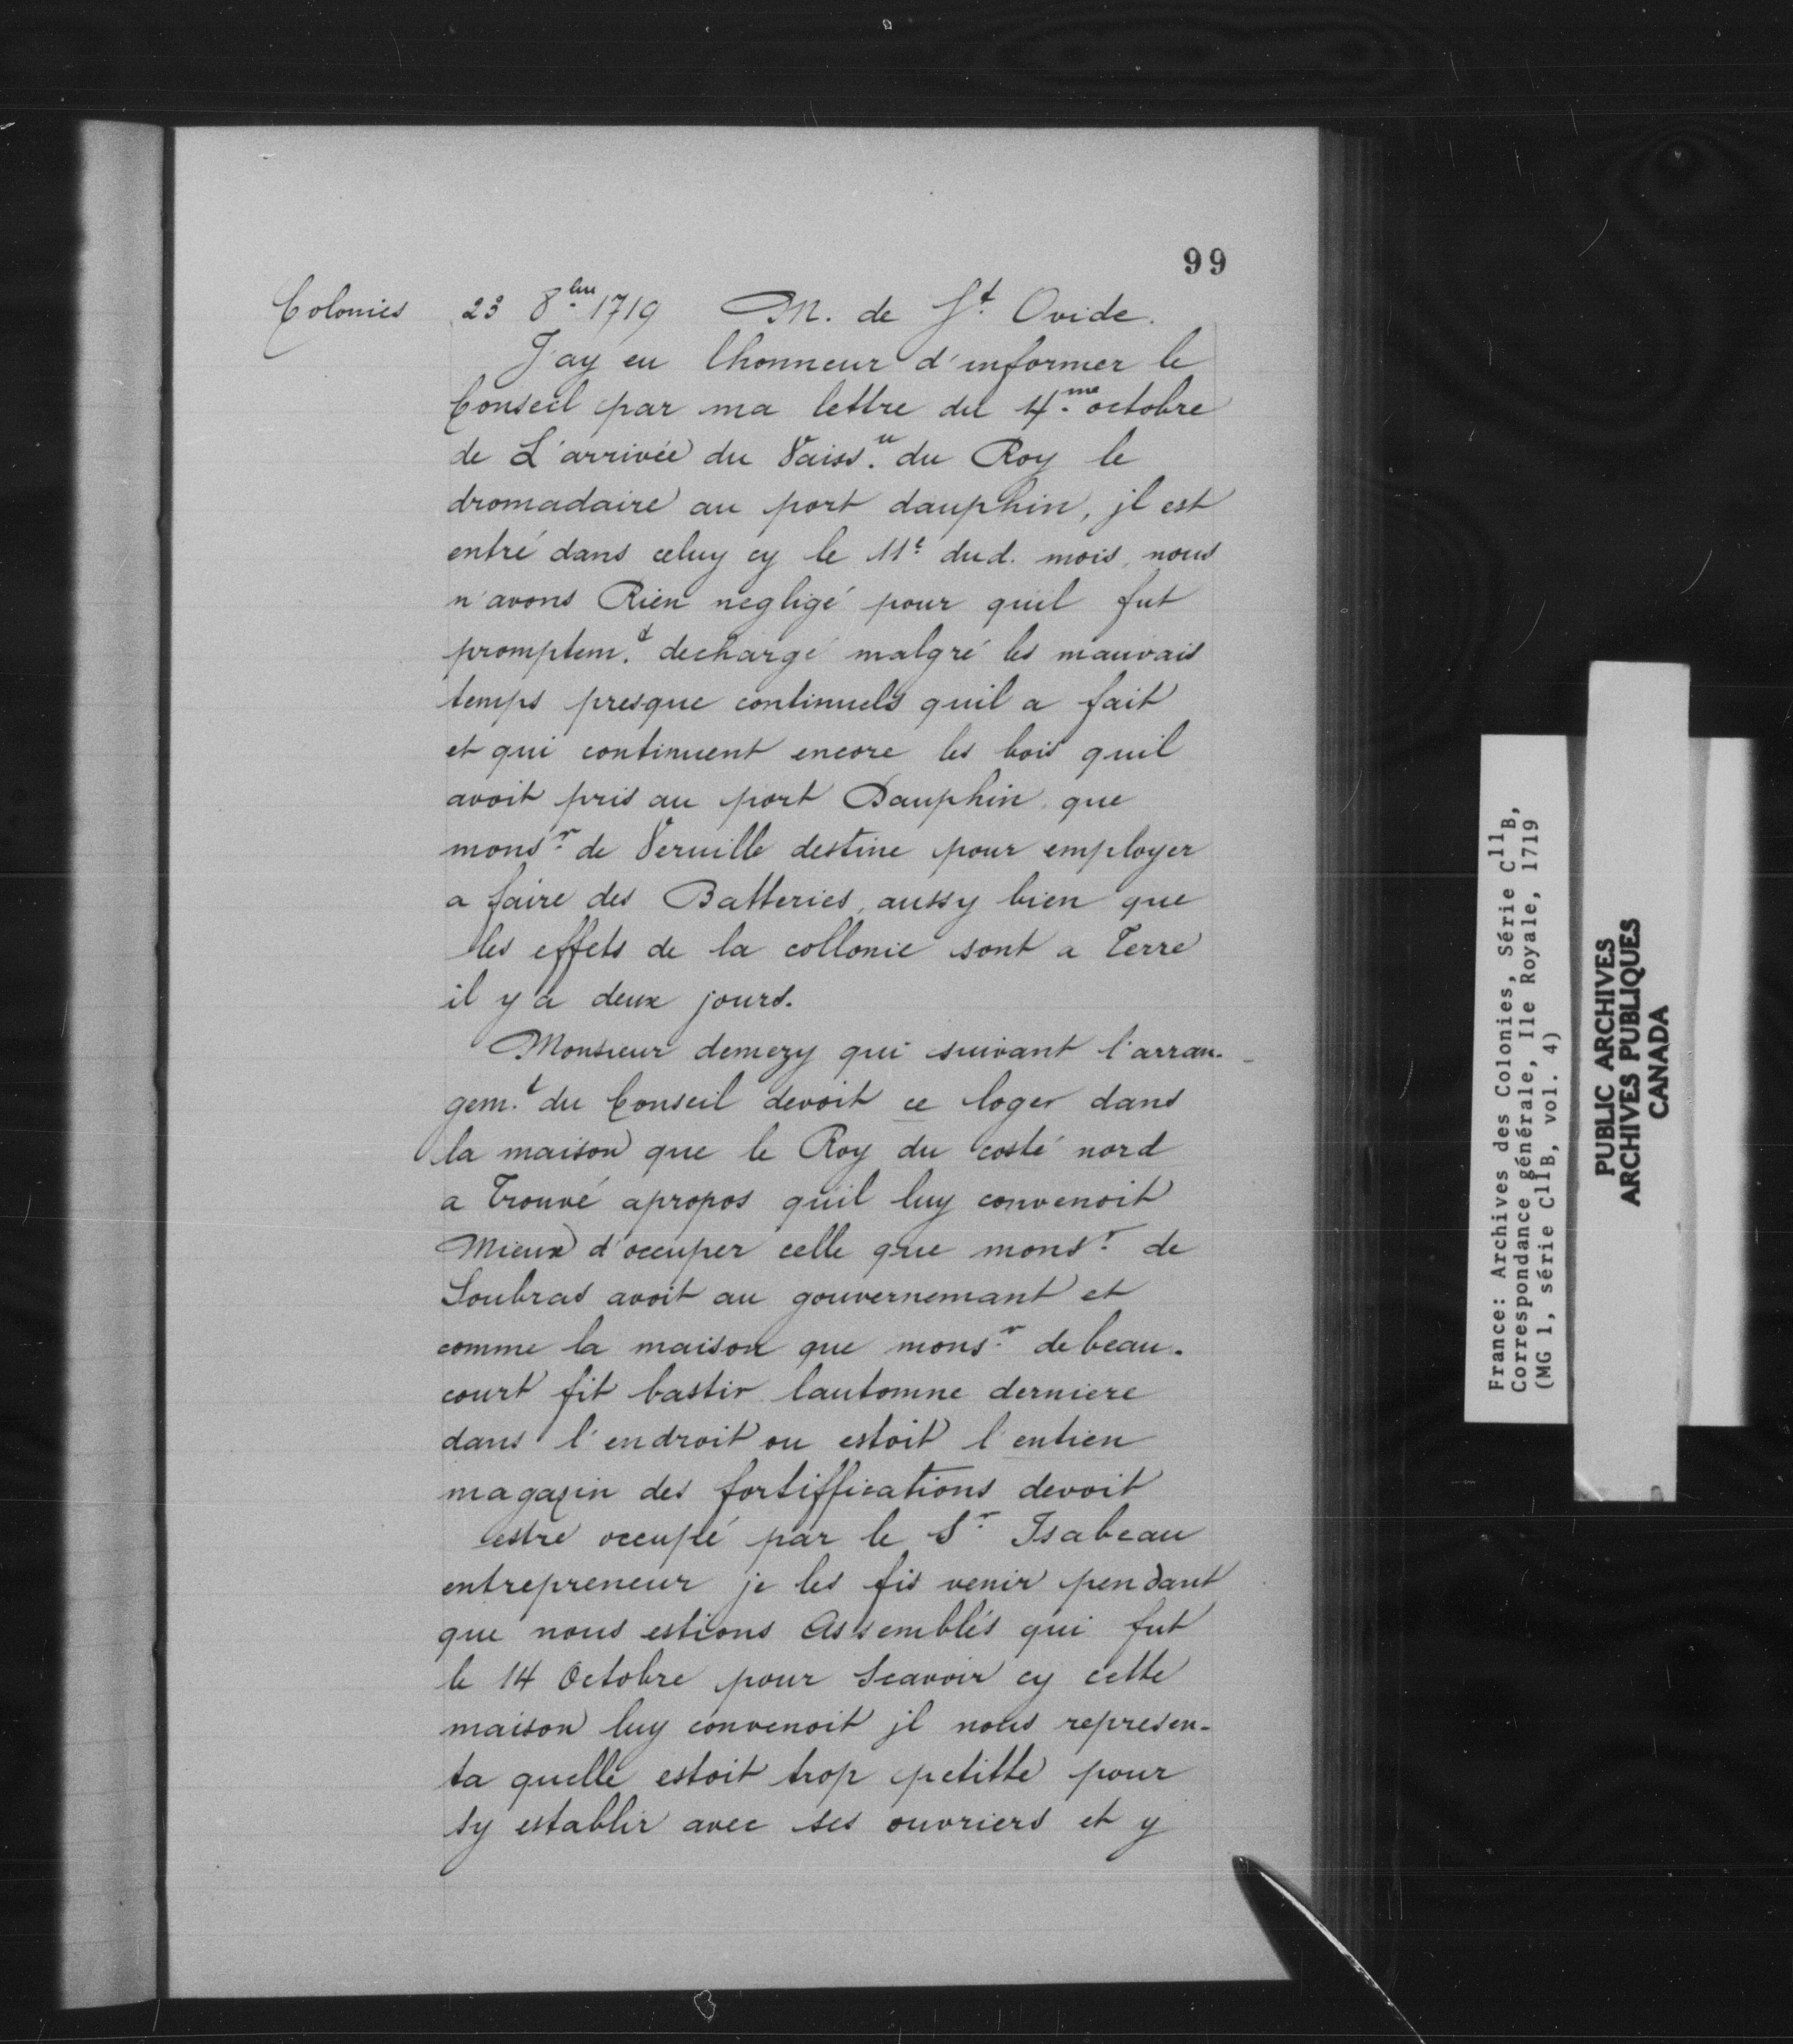 99
Colonies 23 8bre 1719 M. de St. Ovide.
J'ay eu lhonneur d'informer le
Conseil par ma lettre du 4.me octobre
de L'arrivée du Vaiss.u du Roy le
dromadaire au port dauphin, jl est
entré dans celuy cy le 11e dud. mois, nous
n'avons Rien negligé pour quil fut
promptem.t dechargé malgré les mauvais
temps presque continuels quil a fait
et qui continuent encore les bois quil
avoit pris au port Dauphin que
monsr. de Verville destine pour employer
a faire des Batteries, aussy bien que
les effets de la collonie sont a Terre
il y a deux jours.
Monsieur demezy qui suivant l'arran-
gem.t du Conseil devoit ce loger dans
la maison que le Roy du costé nord
a Trouvé apropos quil luy convenoit
Mieux d'occuper celle que monsr. de
Soubras avoit au gouvernemant et
comme la maison que monsr. de beau-
court fit bastir lautomne derniere
dans l'endroit ou estoit l'entien
magazin des fortiffications devoit
estre occupé par le Sr. Isabeau
entrepreneur je les fis venir pendant
que nous estions Assemblés qui fut
le 14 Octobre pour Scavoir cy cette
maison luy convenoit jl nous represen-
ta quelle estoit trop petitte pour
sy establir avec ses ouvriers et y
France: Archives des Colonies, Série C11B,
Correspondance générale, Ile Royale, 1719
(MG 1, série C11B, vol. 4)
PUBLIC ARCHIVES
ARCHIVES PUBLIQUES
CANADA